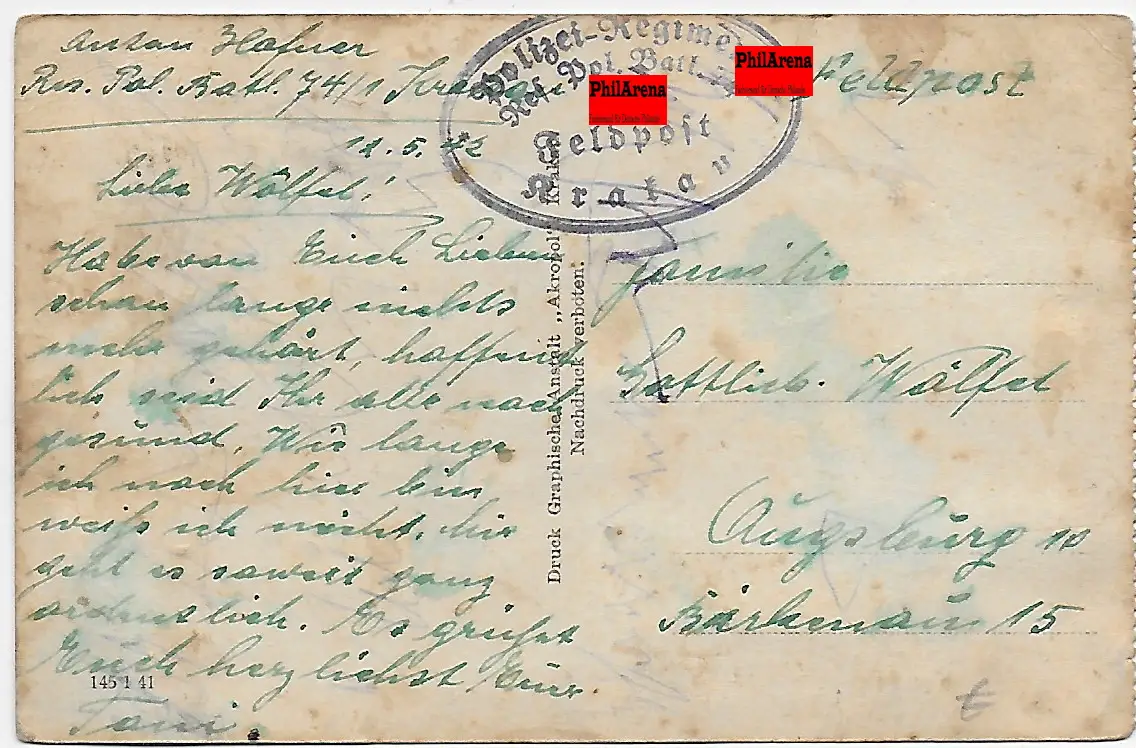 Anton Hafner
Res. Pol. Batl. 74/1
Feldpost
Polizei-Regime
Res. Pol. Batl.
Feldpost
Krakau
PhilArena
PhilArena
11.5.42
Liebe Wölfel!
Habe von Euch Lieben
schon lange nichts
mehr gehört, hoffent
lich seid Ihr alle noch
gesund. Wie lange
ich noch hier bin,
weiß ich nicht. Mir
geht es soweit ganz
ordentlich. Es grüßt
Euch herzlichst Euer
Toni.
145 1 41
Druck Graphische Anstalt „Akropol“ Krakau
Nachdruck verboten.
Familie
Gottlieb Wölfel
Augsburg 10
Bärenau 15